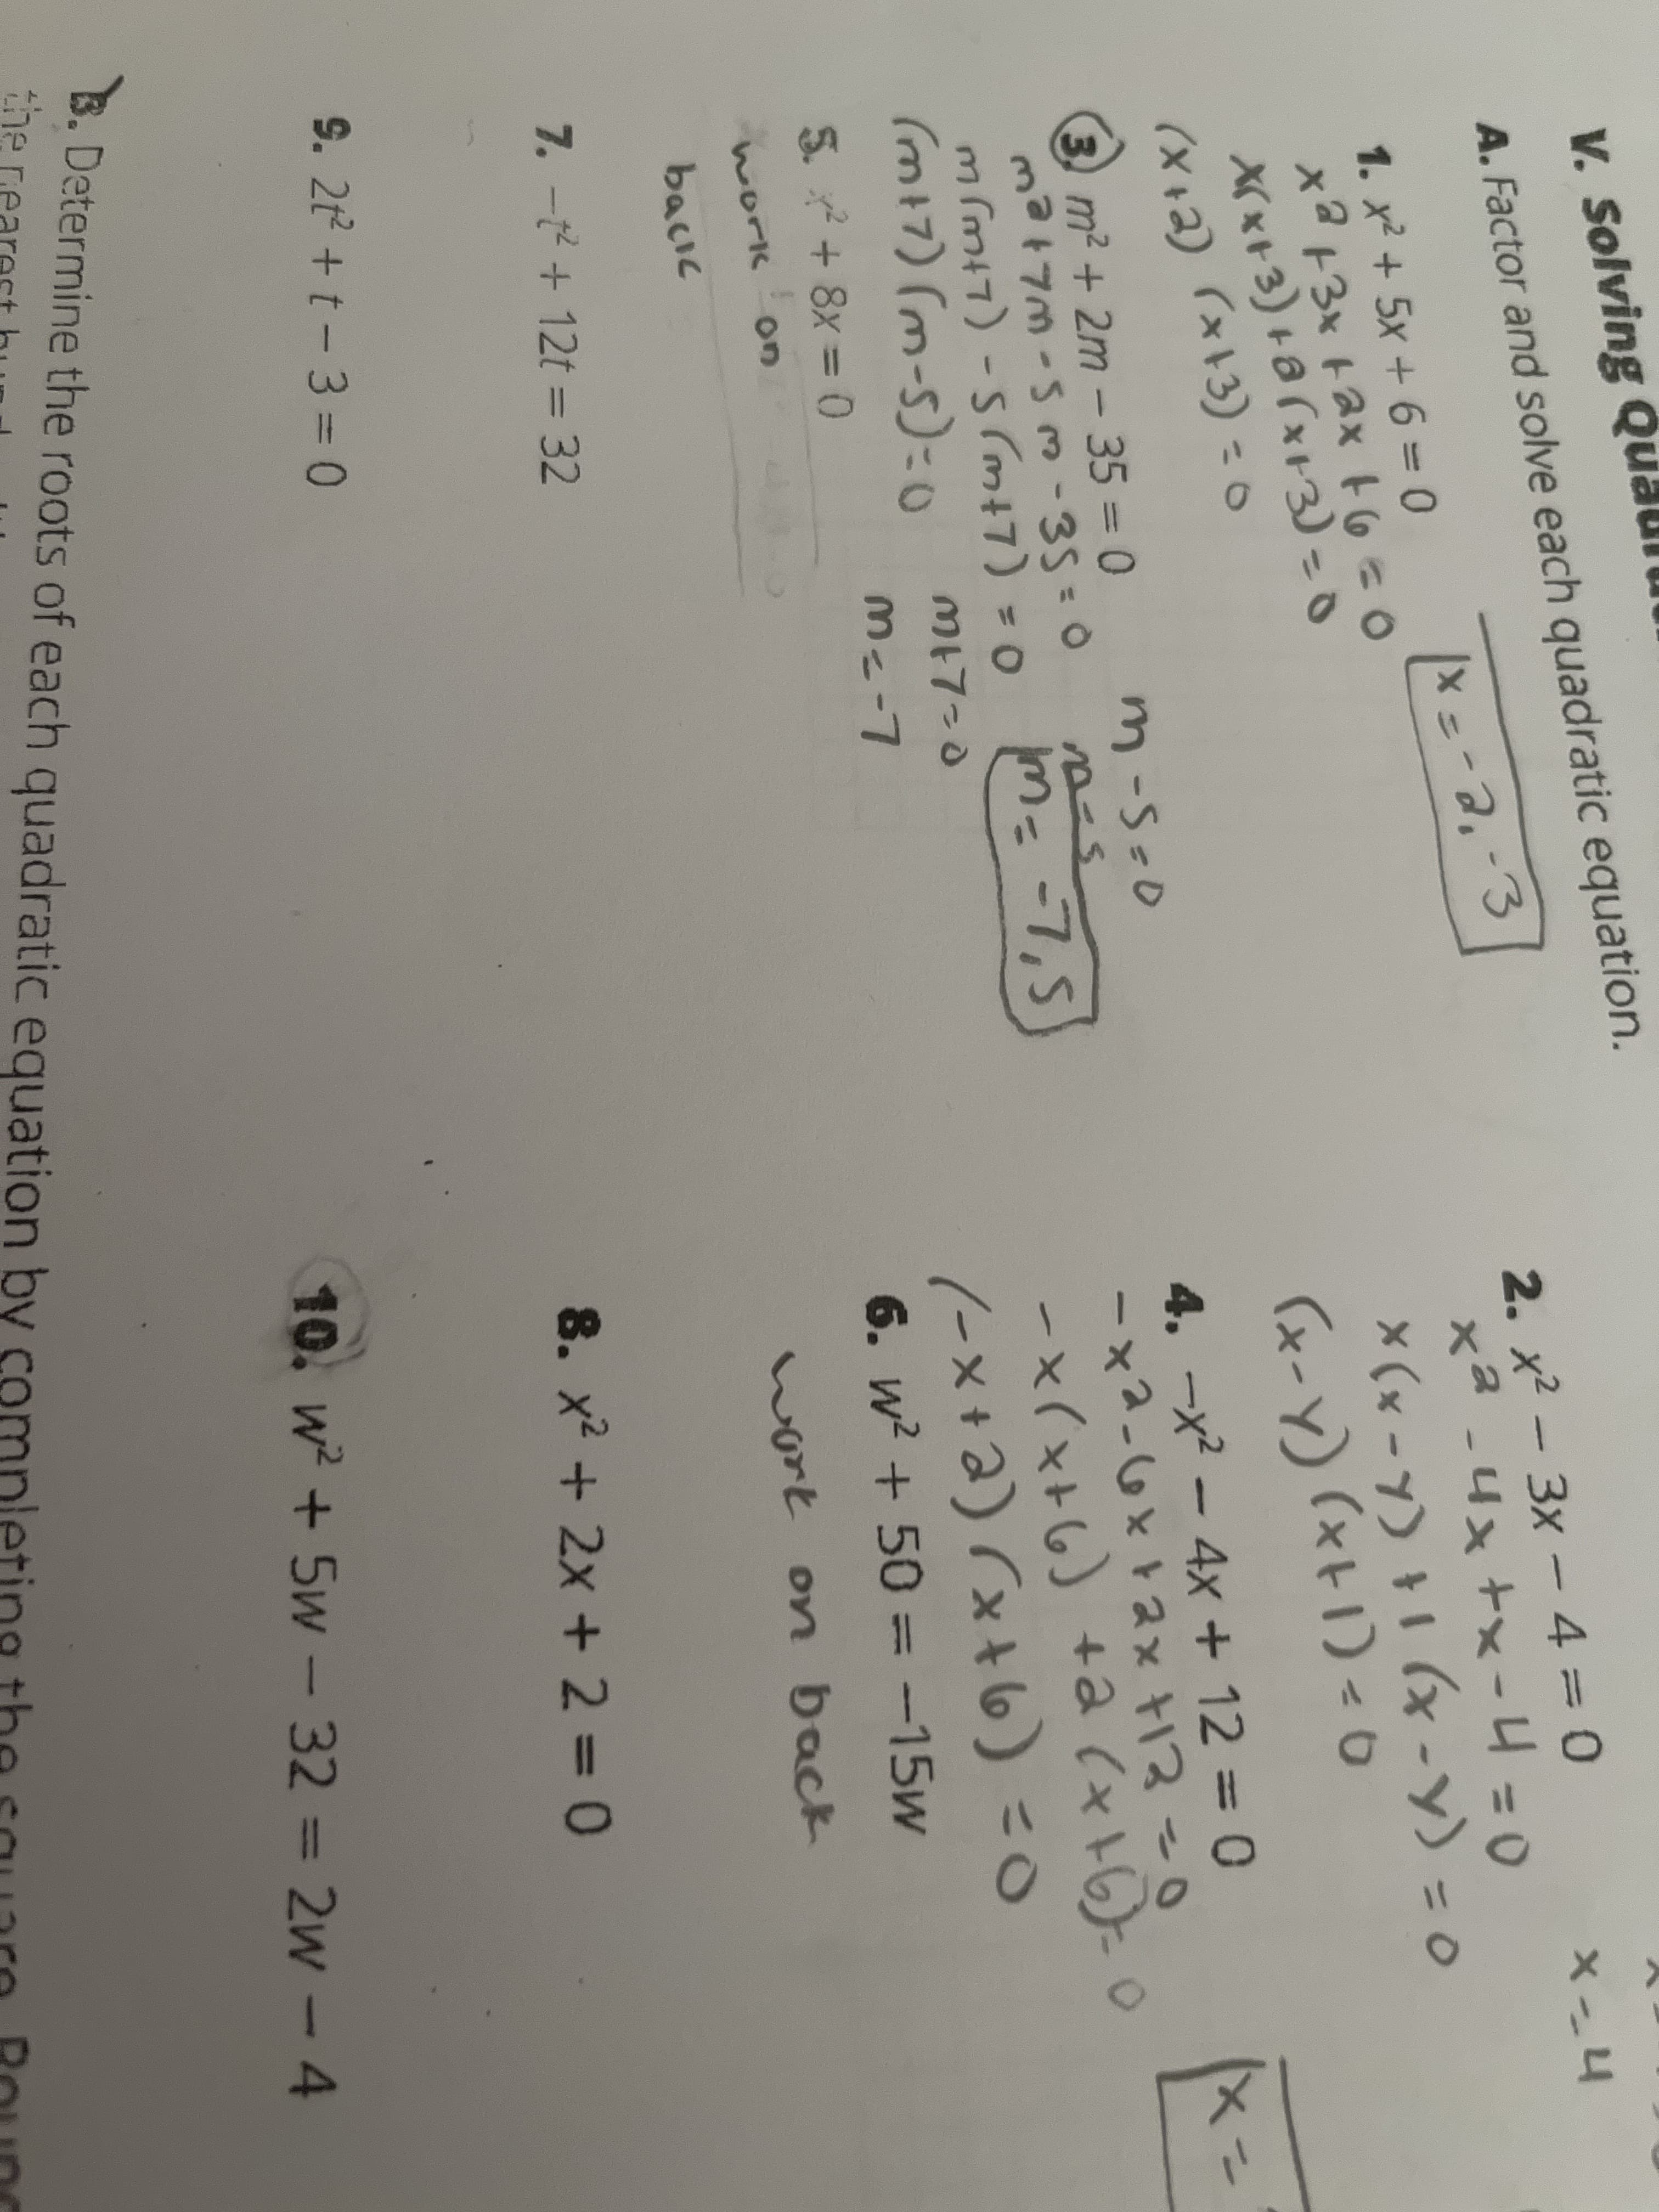 V. Solving
A. Factor and solve each quadratic equation.
1. x² + 5x + 6 = 0
x2 + 3x + 2x + 6 = 0
x(x+3) + 2(x+3) = 0
(x+2) (x+3) = 0
x = -2, -3
2. x² − 3x − 4 = 0
x2 - 4x + x - 4 = 0
x(x-4) + 1(x-4) = 0
(x-4) (x+1) = 0
x = 4
3. m² + 2m − 35 = 0
m2 + 7m - 5m - 35 = 0
m(m+7) - 5(m+7) = 0
(m+7) (m-5) = 0
m - 5 = 0
m = 5
m + 7 = 0
m = -7
m = -7, 5
4. −x² − 4x + 12 = 0
-x2 - 6x + 2x + 12 = 0
-x(x+6) + 2(x+6) = 0
(-x+2) (x+6) = 0
x =
5. x² + 8x = 0
work on
back
6. w² + 50 = −15w
work on back
7. −t² + 12t = 32
8. x² + 2x + 2 = 0
9. 2t² + t − 3 = 0
10. w² + 5w − 32 = 2w − 4
B. Determine the roots of each quadratic equation by completing the square.
the nearest